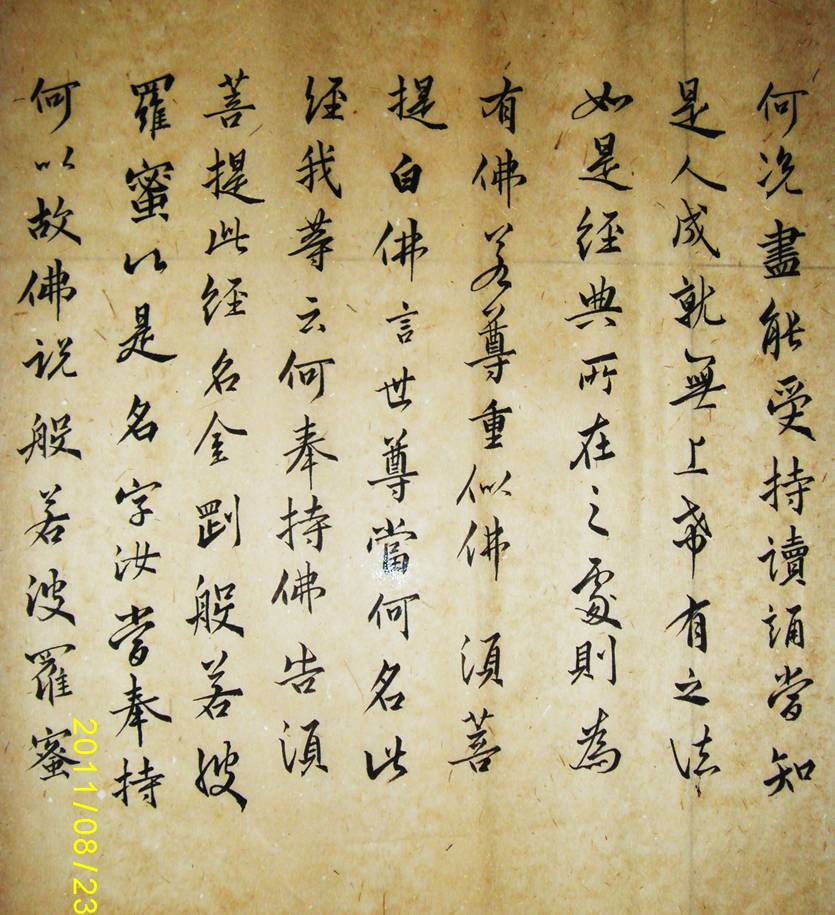 何况盡能受持讀誦當知
是人成就無上希有之法
如是經典所在之處則為
有佛若尊重似佛 須菩
提白佛言世尊當何名此
經我等云何奉持佛告須
菩提此經名金剛般若波
羅蜜以是名字汝當奉持
何以故佛説般若波羅蜜
2011/08/23